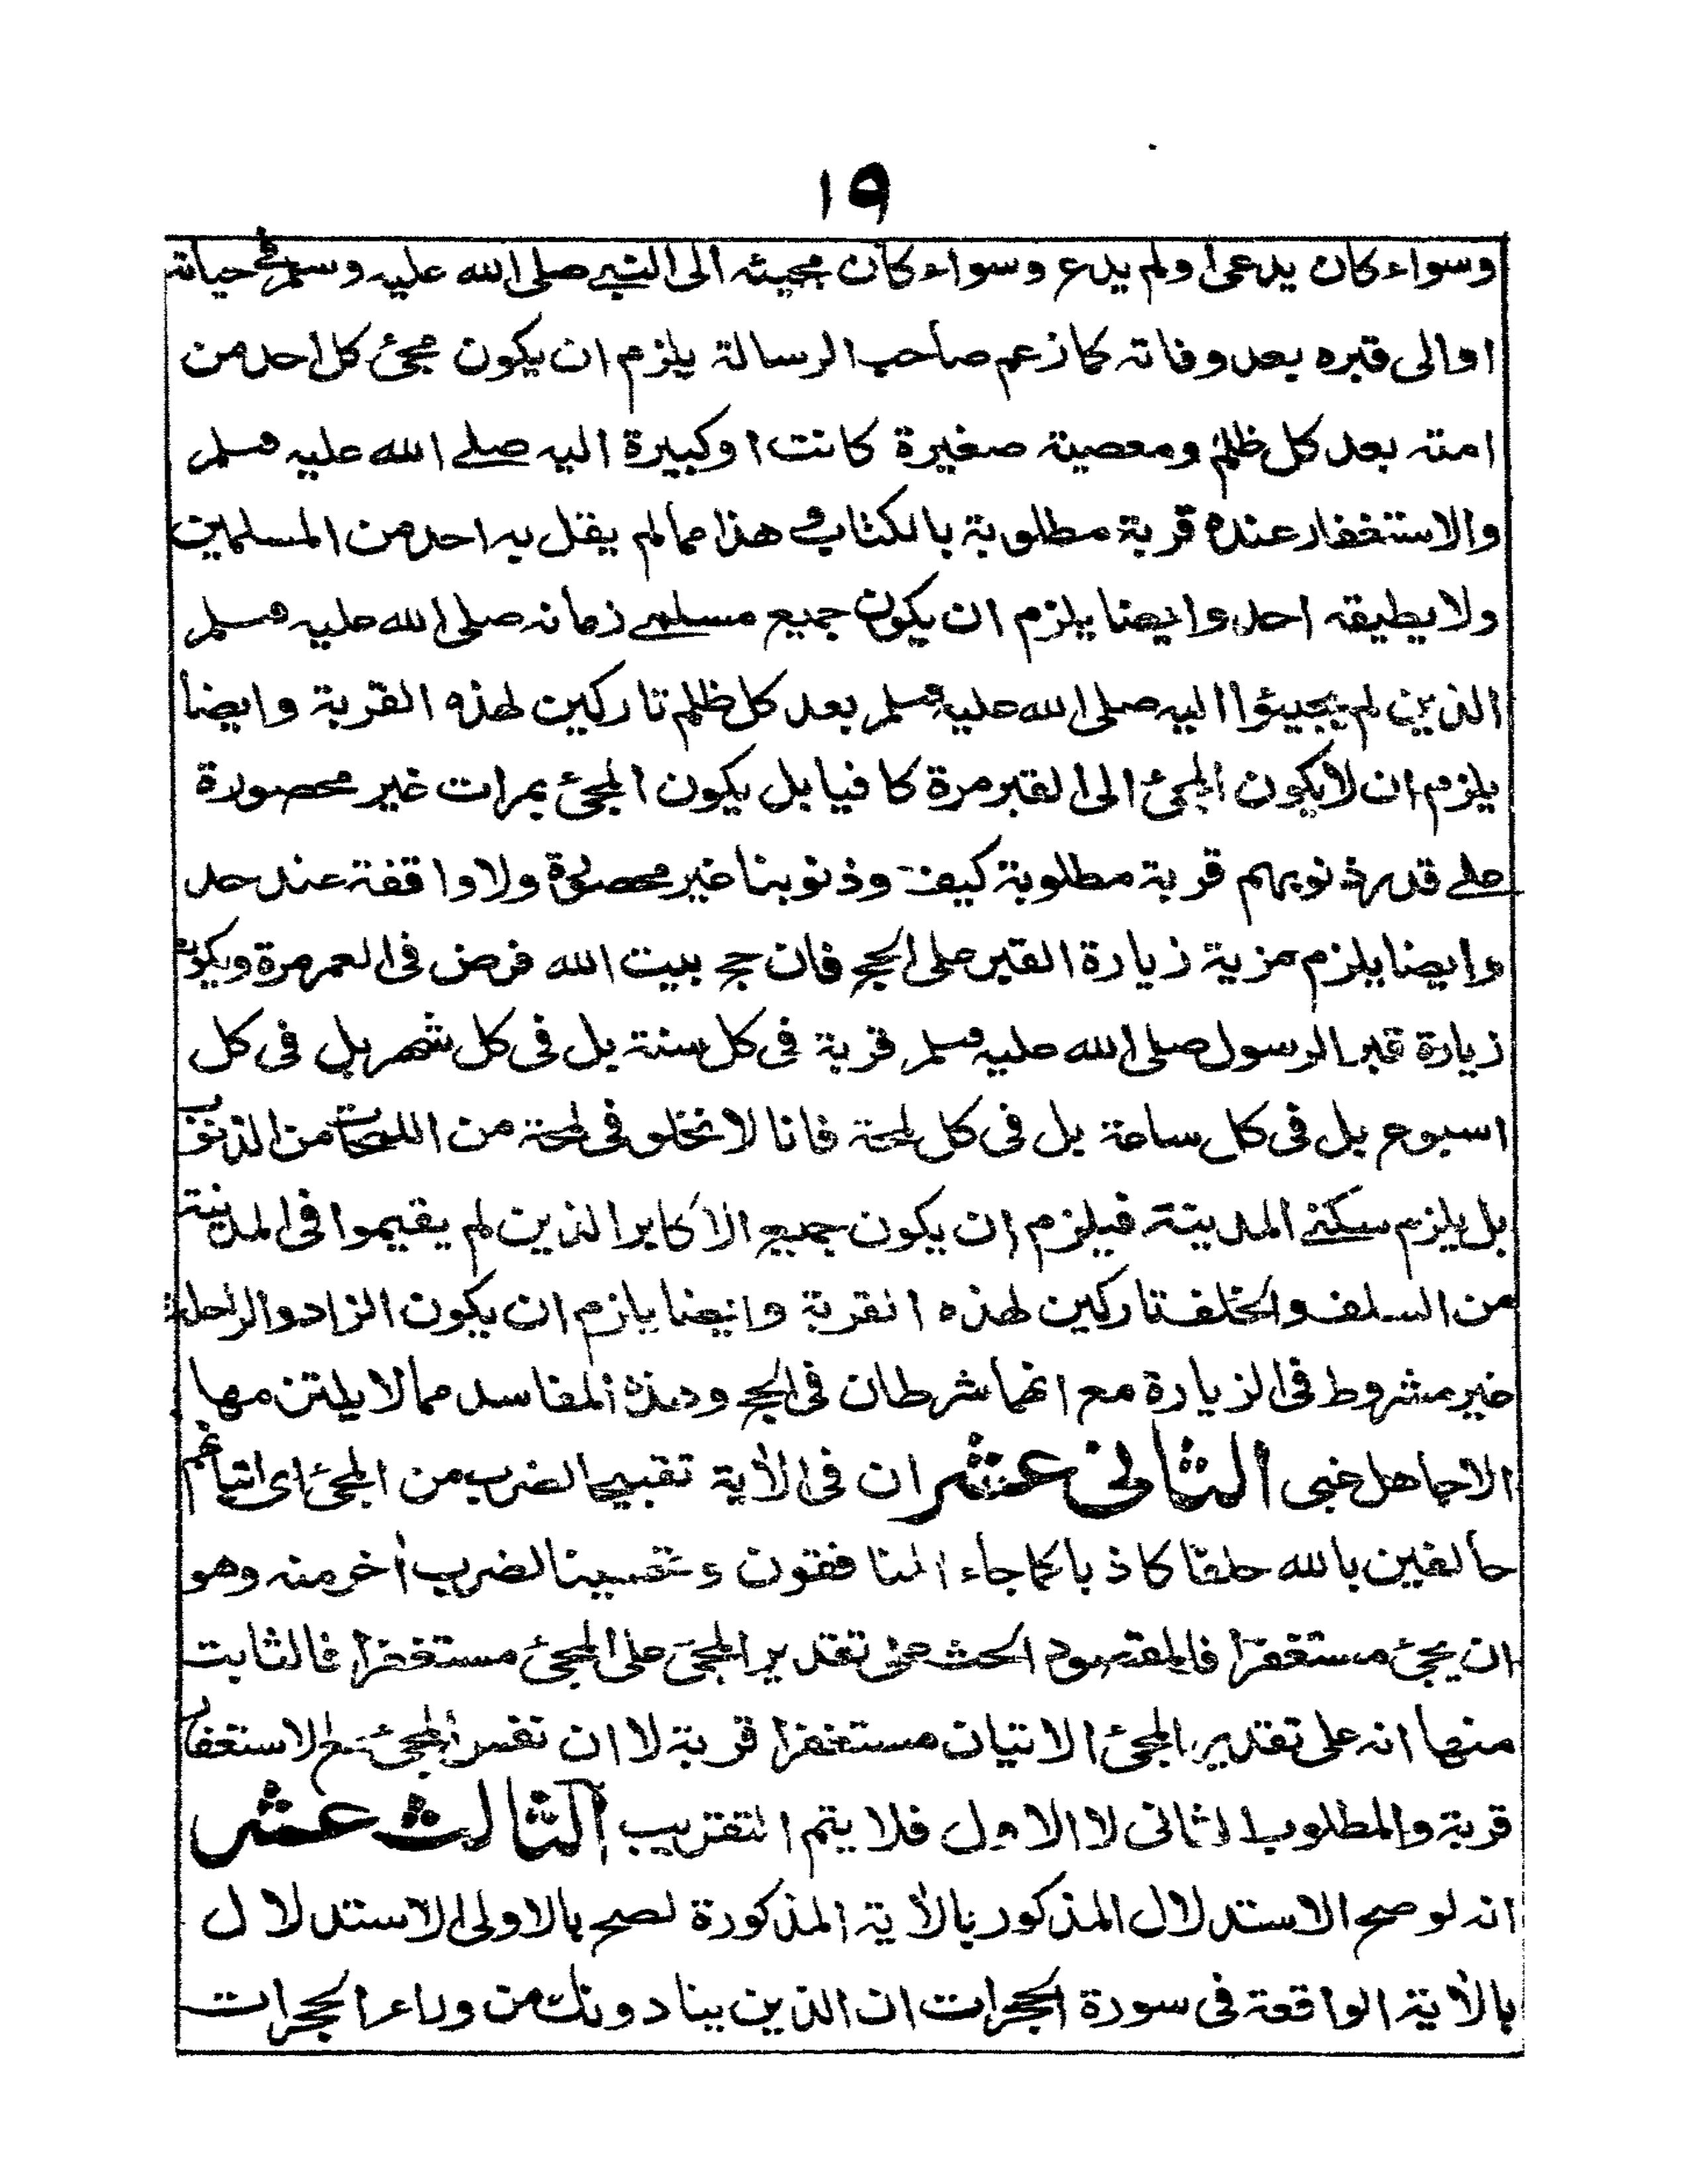 ١٩
وسواء كان يدعى اولم يدع وسواء كان مجيئه الى النبي صلى الله عليه وسلم في حياته
اوالى قبره بعد وفاته كما زعم صاحب الرسالة يلزم ان يكون مجئ كل احد من
امته بعد كل ظلم ومعصية صغيرة كانت اوكبيرة اليه صلى الله عليه وسلم
والاستغفار عنده قربة مطلوبة بالكتاب وهذا مما لم يقل به احد من المسلمين
ولا يطيقه احد وايضا يلزم ان يكون جميع مسلمي زمانه صلى الله عليه وسلم
الذين لم يجيئوا اليه صلى الله عليه وسلم بعد كل ظلم تاركين لهذه القربة وايضا
يلزم ان لا يكون المجئ الى القبر مرة كافيا بل يكون المجئ بمرات غير محصورة
على قدر ذنوبهم قربة مطلوبة كيف وذنوبنا غير محصورة ولا واقفة عند حد
وايضا يلزم مزية زيارة القبر على الحج فان حج بيت الله فرض فى العمر مرة ويكون
زيارة قبر الرسول صلى الله عليه وسلم قربة فى كل سنة بل فى كل شهر بل فى كل
اسبوع بل فى كل ساعة بل فى كل لمحة فانا لا نخلو فى لمحة من اللمحات من الذنوب
بل يلزم سكنى المدينة فيلزم ان يكون جميع الاكابر الذين لم يقيموا فى المدينة
من السلف والخلف تاركين لهذه القربة وايضا يلزم ان يكون الزاد والراحلة
غير مشروط فى الزيارة مع انهما شرطان فى الحج وهذه المفاسد مما لا يلتزمها
الا جاهل غبى الثانى عشر ان فى الأية تقبيحا لضرب من المجئ اى اتيانهم
حالفين بالله حلفا كاذبا كما جاء المنافقون وتحسينا لضرب أخر منه وهو
ان يجئ مستغفرا فالمقصود الحث على تقدير المجئ على المجئ مستغفرا فالثابت
منها انه على تقدير المجئ الاتيان مستغفرا قربة لا ان نفس المجئ مع الاستغفار
قربة والمطلوب الثانى لا الاول فلا يتم التقريب الثالث عشر
انه لو صح الاستدلال المذكور بالأية المذكورة لصح بالاولى الاستدلال
بالأية الواقعة فى سورة الحجرات ان الذين ينادونك من وراء الحجرات